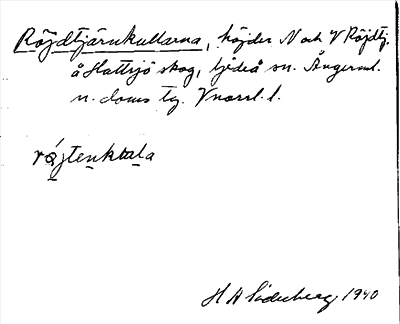 Röjdtjärnkullarna, höjder N och V Röjdtj.
å Hattsjö skog, Fjädeå sn. Ångerml.
n. doms tg. Vnorrl. l.
röjtenkala
H A Söderberg 1940